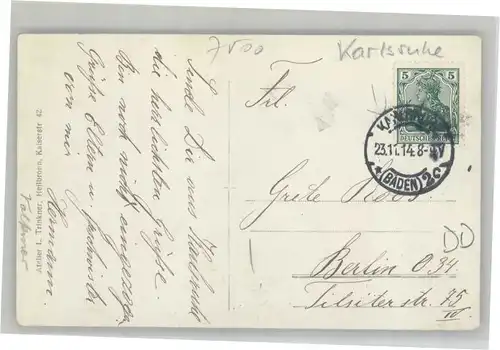 7500
Karlsruhe
Sende Dir aus Karlsruhe
die herzlichsten Grüße.
Bin noch nicht eingezogen
Grüße Eltern u. Geschwister
von mir
Hermann
Atelier L. Trinkner, Heilbronn, Kaiserstr. 42
5
DEUTSCHES REICH
23.11.14. 8-9V
* (BADEN) 2c
Frl.
Grete
Berlin O 34.
Tilsiterstr. 75
IV
DD